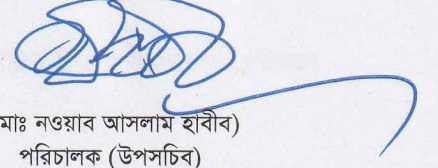 মাঃ নওয়াব আসলাম হাবীব)
পরিচালক (উপসচিব)